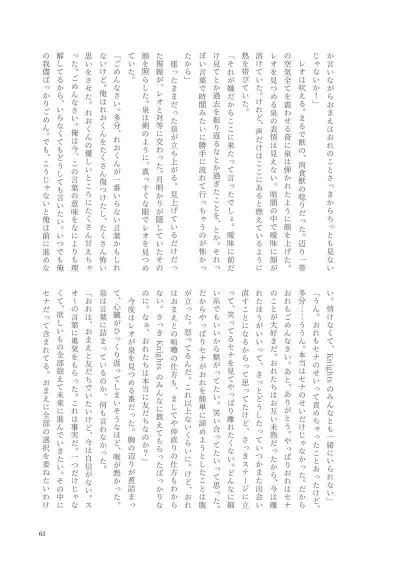 か言いながらおまえはおれのことさっきからちっとも見ない
じゃないか！」
　レオは吠える。まるで獣の、肉食獣の唸りだった。辺り一帯
の空気全てを震わせる音に泉は弾かれたように顔を上げた。
レオを見つめる泉の表情は見えない。暗闇の中で曖昧に顔が
溶けていた。けれど、声だけはここにあると燃えているように
熱を帯びていた。
「それが嫌だからここに来たって言ったでしょ。曖昧に前だ
け見てとか過去を振り返るなとか過ぎたことを、とか。それっ
ぽい言葉で時間みたいに勝手に流れて行っちゃうのが怖かっ
たから」
　座ったままだった泉が立ち上がる。見上げているだけだっ
た視線が、レオと対等に交わった。月明かりが隠していたその
顔を照らした。泉は剣のように、真っすぐな眼でレオを見つめ
ていた。
「ごめんなさい。多分、れおくんが一番いらない言葉かもしれ
ないけど。俺はれおくんをたくさん傷つけたし、たくさん怖い
思いをさせた。れおくんの優しいところにたくさん甘えちゃ
った。ごめんなさい。俺は今、この言葉の意味をなによりも理
解してるから、いらなくてもどうしても言いたい。いつでも俺
の我儘ばっかりごめん。でも、こうじゃないと俺は前に進めな
い。情けなくて、Knightsのみんなとも一緒にいられない」
「うん。おれもセナのせいって責めちゃったことあったけど、
多分……ううん。本当はセナのせいだけじゃなかった。だから
おれもごめんなさい。あと、ありがとう。やっぱりおれはセナ
のことが大好きだ。おれたちはお互い未熟だったから、今は離
れたほうがいいって、きっとどうしたっていつかまた出会い
直すことになるからって思ってたけど、さっきステージに立
って、笑ってるセナを見てやっぱり離れたくない。どんなに細
い糸でもいいから繋がってたい。笑い合ってたいって思った。
だからやっぱりセナがおれを簡単に諦めようとしたことは腹
が立った。怒ってるんだ。これ以上ないくらいに。けど、おれ
はおまえとの喧嘩の仕方も、ましてや仲直りの仕方もわから
ない。さっき Knights のみんなに教えてもらったばっかりな
のに。なぁ、おれたちは本当に友だちなのか？」
　今度はレオが泉を見つめる番だった。胸の辺りが煮詰まっ
て、心臓がひっくり返ってしまいそうなほど、喉が熱かった。
泉は言葉に詰まっているのか、何も言わなかった。
「おれは、おまえと友だちでいたいけど、今は自信がない。ス
オ〜の言葉に勇気をもらった。これは事実だ。一つだけじゃな
くて、欲しいもの全部抱えて未来に進んでいきたい。その中に
セナだって含まれてる。おまえに全部の選択を委ねたいわけ
63